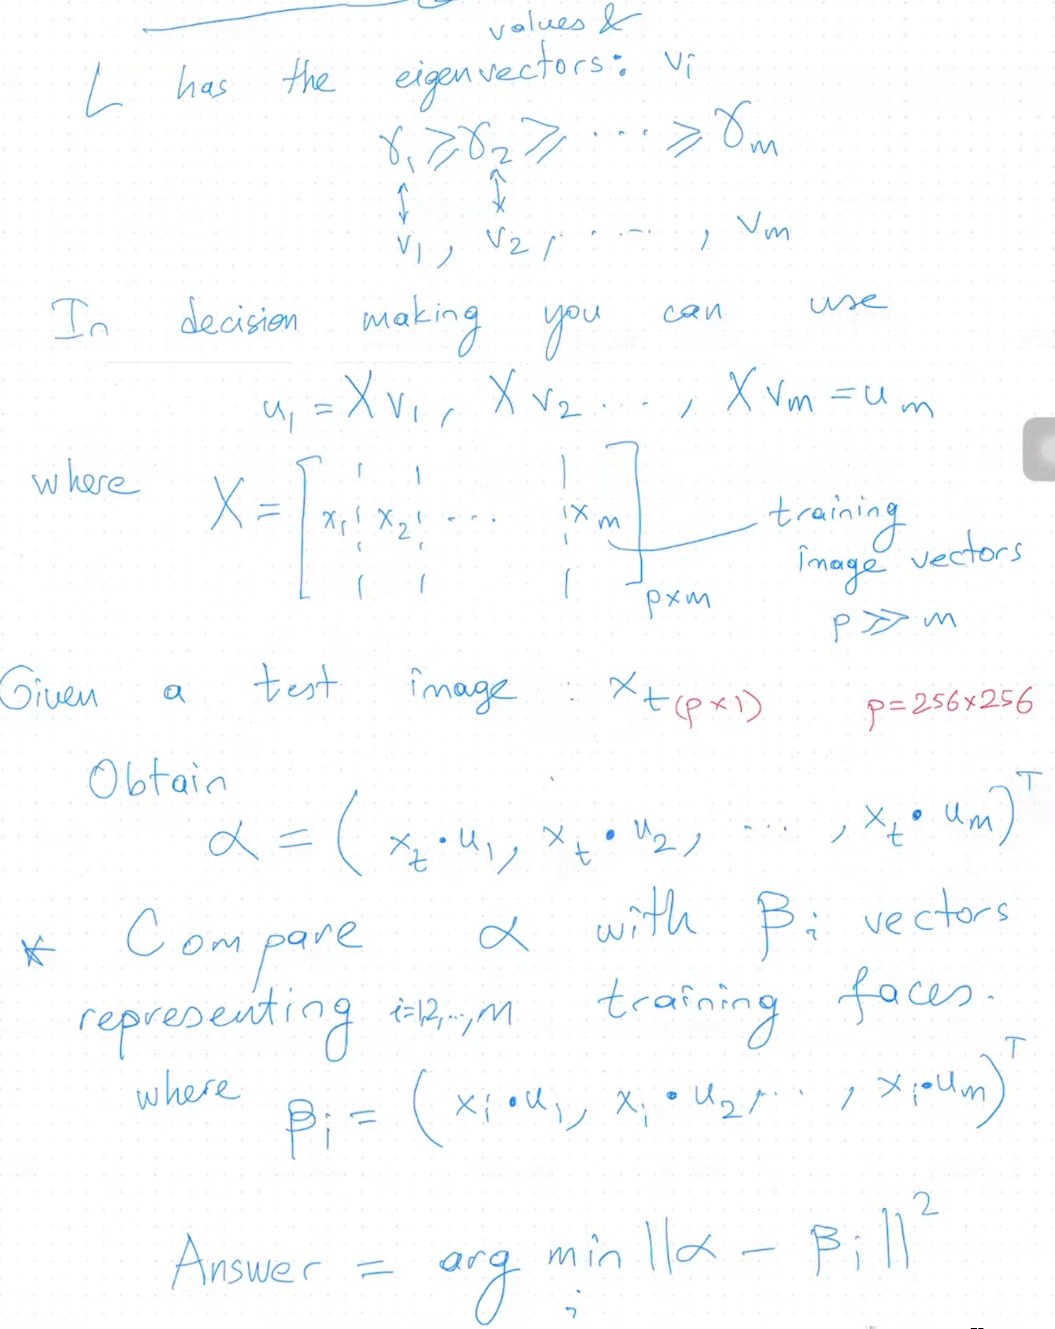 values &
L has the eigenvectors: vi
γ1 ≥ γ2 ≥ ... ≥ γm
v1, v2, ..., vm
In decision making you can use
u1 = X v1, X v2 ..., X vm = um
where X = [x1 x2 ... xm] p×m training
image vectors
p >> m
Given a test image : xt (p×1) p=256×256
Obtain
α = (xt • u1, xt • u2, ..., xt • um)^T
* Compare α with βi vectors
representing i=1,2,..,M training faces.
where βi = (xi • u1, xi • u2, ..., xi • um)^T
Answer = arg min i ||α - βi||^2